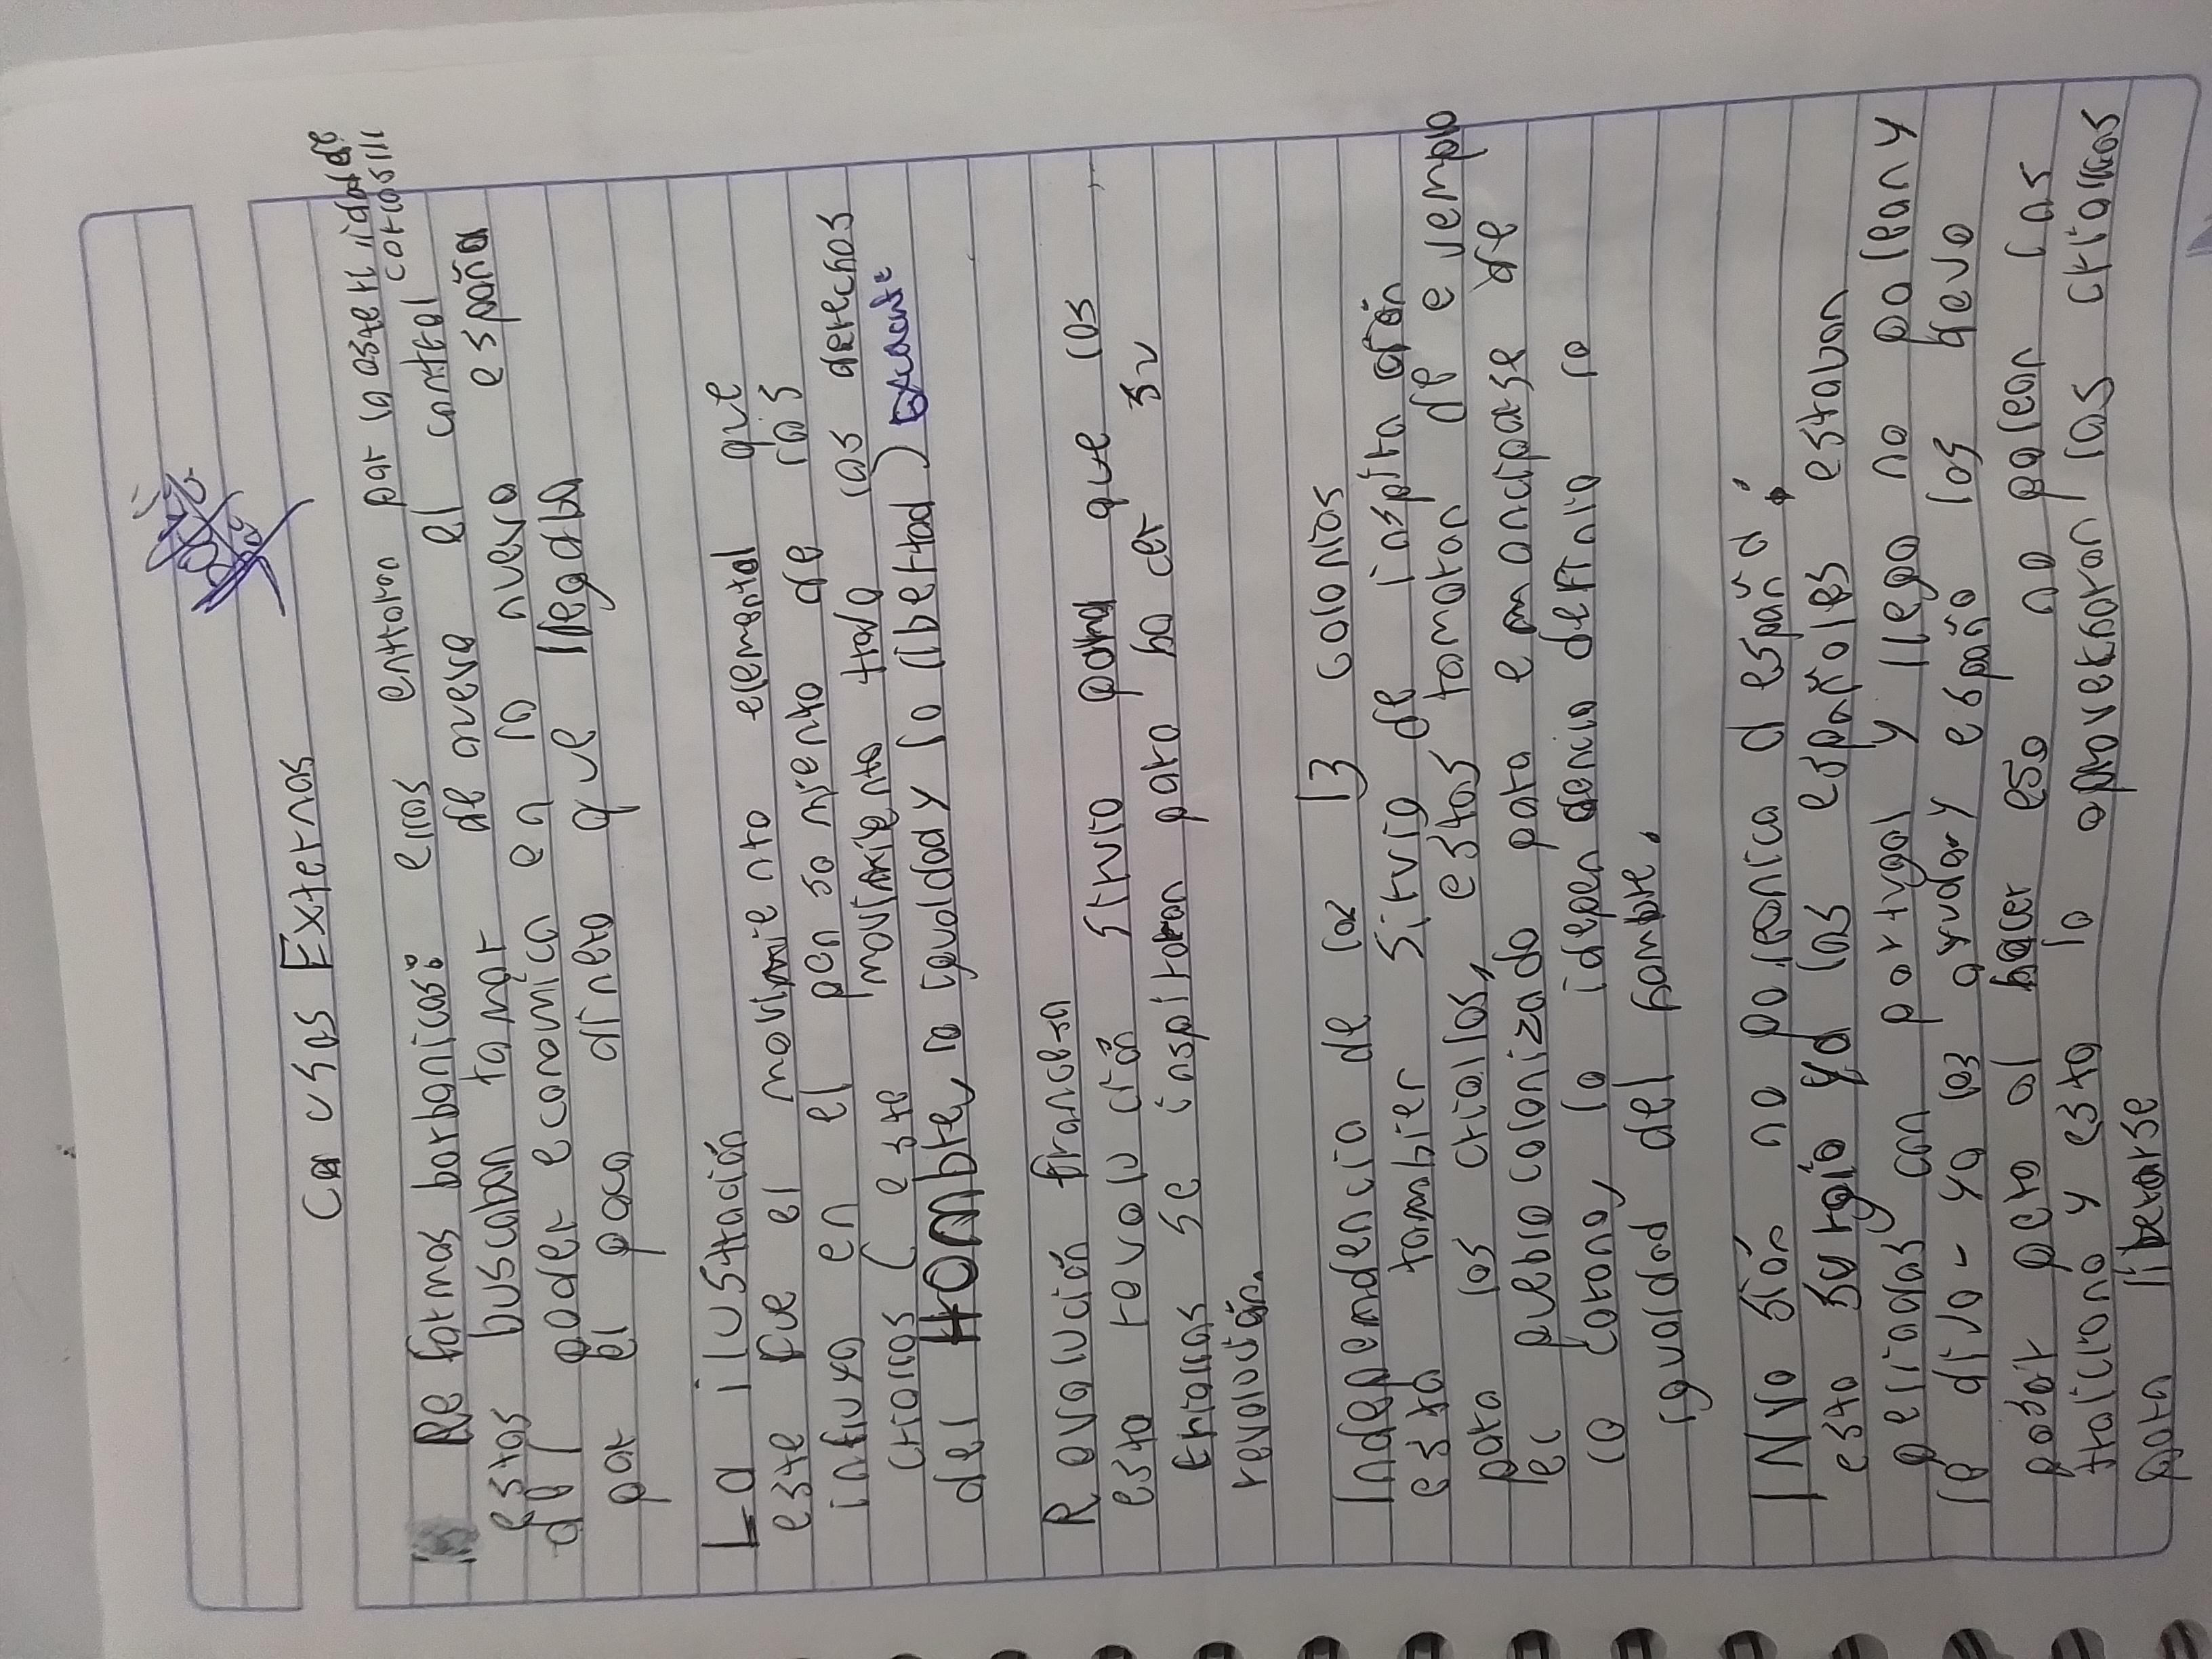 Causas Externas
Reformas borbonicas: ellas entraron por la
estas buscaban tomar de nueva el control carlos III
del poder economico en la nueva españa
por el poco dinero que llegaba
La ilustración
este fue el movimiento elemental que
influyo en el pensamiento de los
criollos (este movimiento trajo los derechos
del HOMbre, la igualdad y la libertad)
Revolución francesa
esta revolución sirvio para que los
criollos se inspiraran para hacer su
revolución.
Independencia de las 13 colonias
esta tambier sirvio de inspiración
para los criollos, estas tomaron de ejemplo
el pueblo colonizado para emanciparse de
la corona, la idependencia definio la
igualdad del hombre.
INvosión napoleonica a españa:
esto surgio ya los españoles estaban
peliados con portugal y llego napoleany
le dijo- yo los ayudary españa los dejo
pasar pero al hacer eso napolean los
traiciono y esto lo aprovecharon los criollos
para liberarse